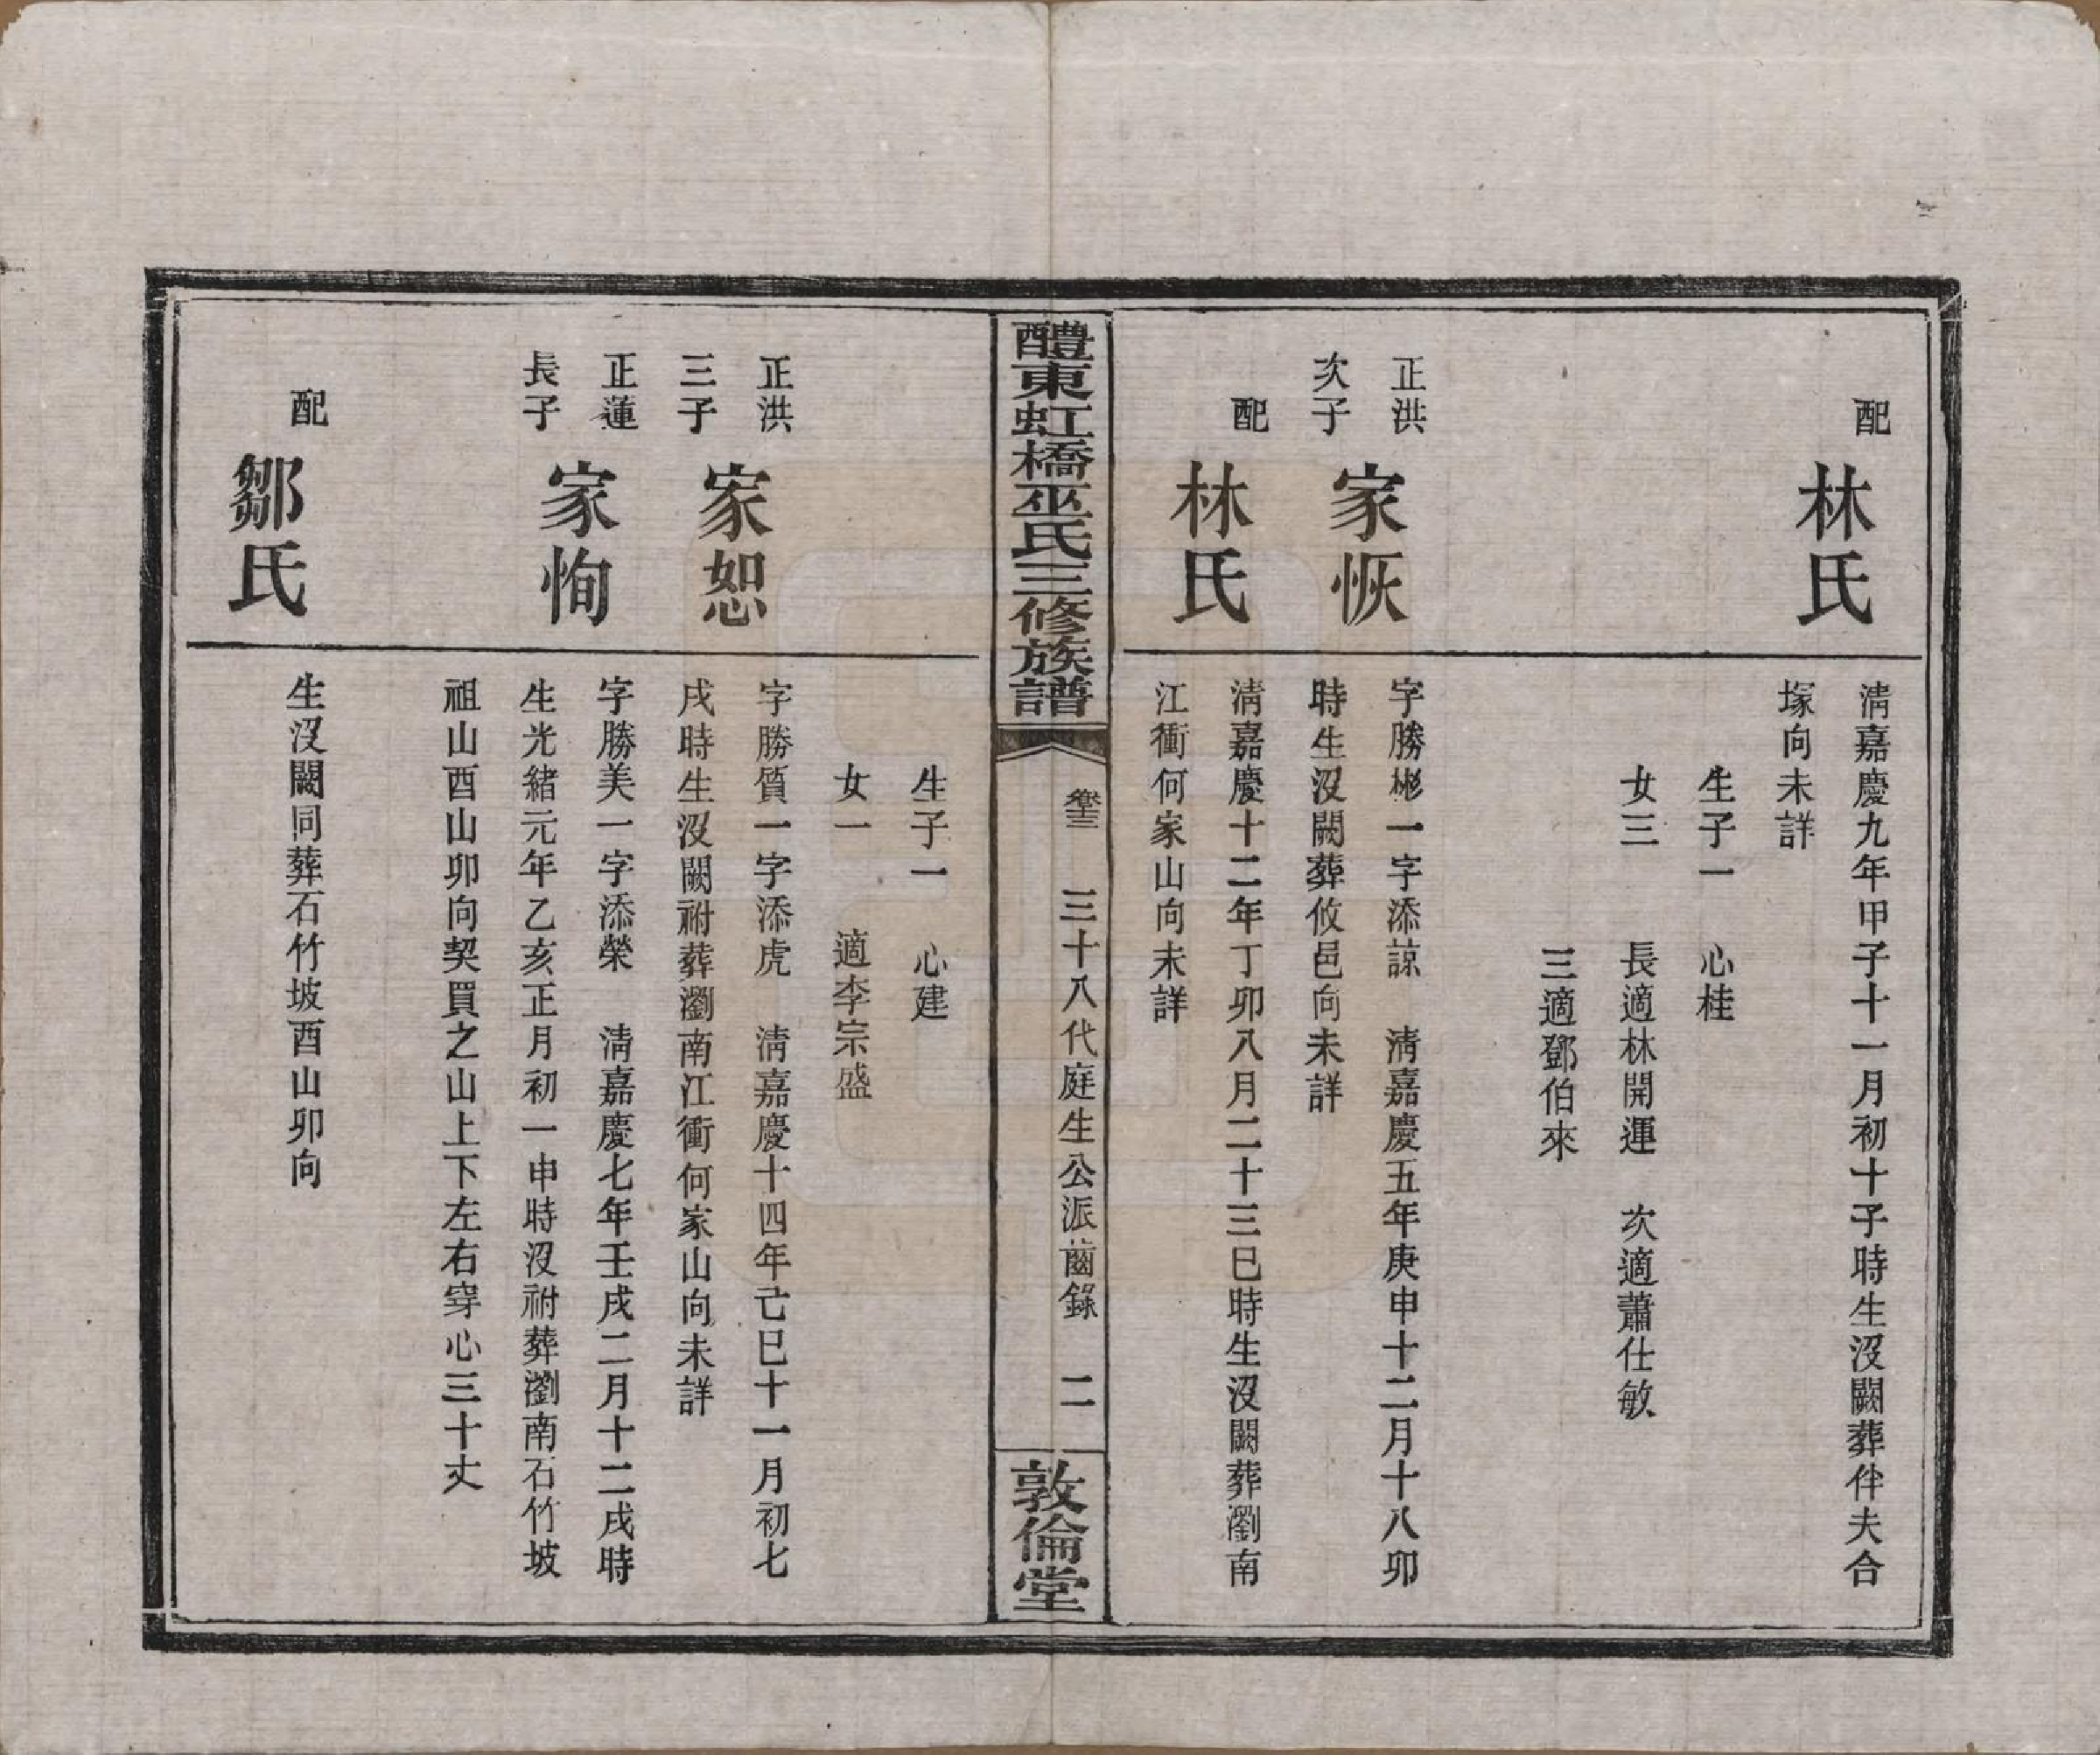 配
林氏
清嘉慶九年甲子十一月初十子時生沒闕葬伴夫合
塚向未詳
生子一　心桂
女三　長適林開運　次適蕭仕敏
三適鄧伯來
正洪
次子
家恢
字勝彬一字添諒　清嘉慶五年庚申十二月十八卯
時生沒闕葬攸邑向未詳
配
林氏
清嘉慶十二年丁卯八月二十三巳時生沒闕葬瀏南
江衝何家山向未詳
醴東虹橋巫氏三修族譜
三十八代庭生公派齒錄　二
敦倫堂
生子一　心建
女一　適李宗盛
正洪
三子
家恕
字勝質一字添虎　清嘉慶十四年己巳十一月初七
戌時生沒闕祔葬瀏南江衝何家山向未詳
正蓮
長子
家恂
字勝美一字添榮　清嘉慶七年壬戌二月十二戌時
生光緒元年乙亥正月初一申時沒祔葬瀏南石竹坡
祖山酉山卯向契買之山上下左右穿心三十丈
配
鄒氏
生沒闕同葬石竹坡酉山卯向